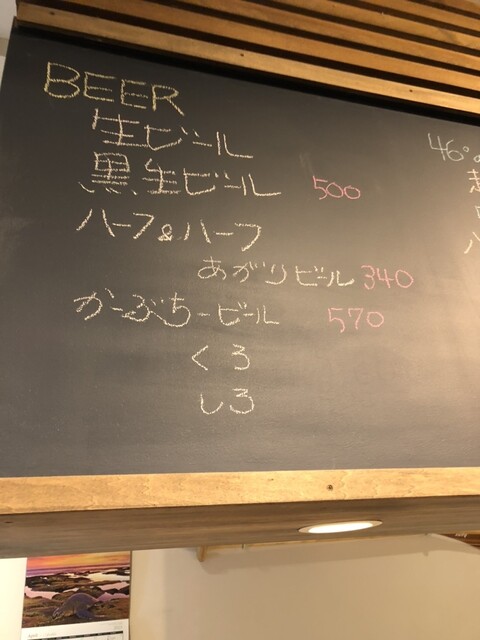 BEER
生ビール
黒生ビール 500
ハーフ&ハーフ
あがりビール 340
かーぶちービール 570
くろ
しろ
46°